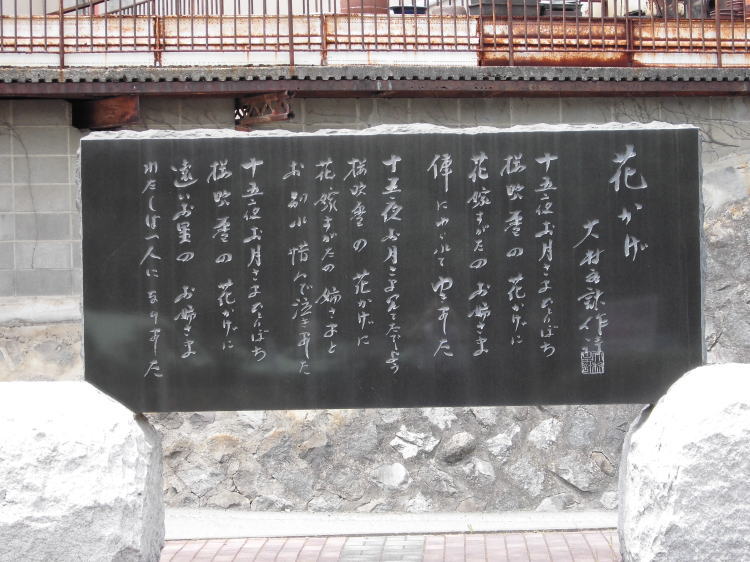 花かげ
大村主計作詩
十五夜お月さまひとりぼち
桜吹雪の花かげに
花嫁すがたのお姉さま
俥にゆられてゆきました
十五夜お月さま見てたでしょう
桜吹雪の花かげに
花嫁すがたの姉さまと
お別れ惜んで泣きました
十五夜お月さまひとりぼち
桜吹雪の花かげに
遠いお里のお姉さま
わたしは一人になりました